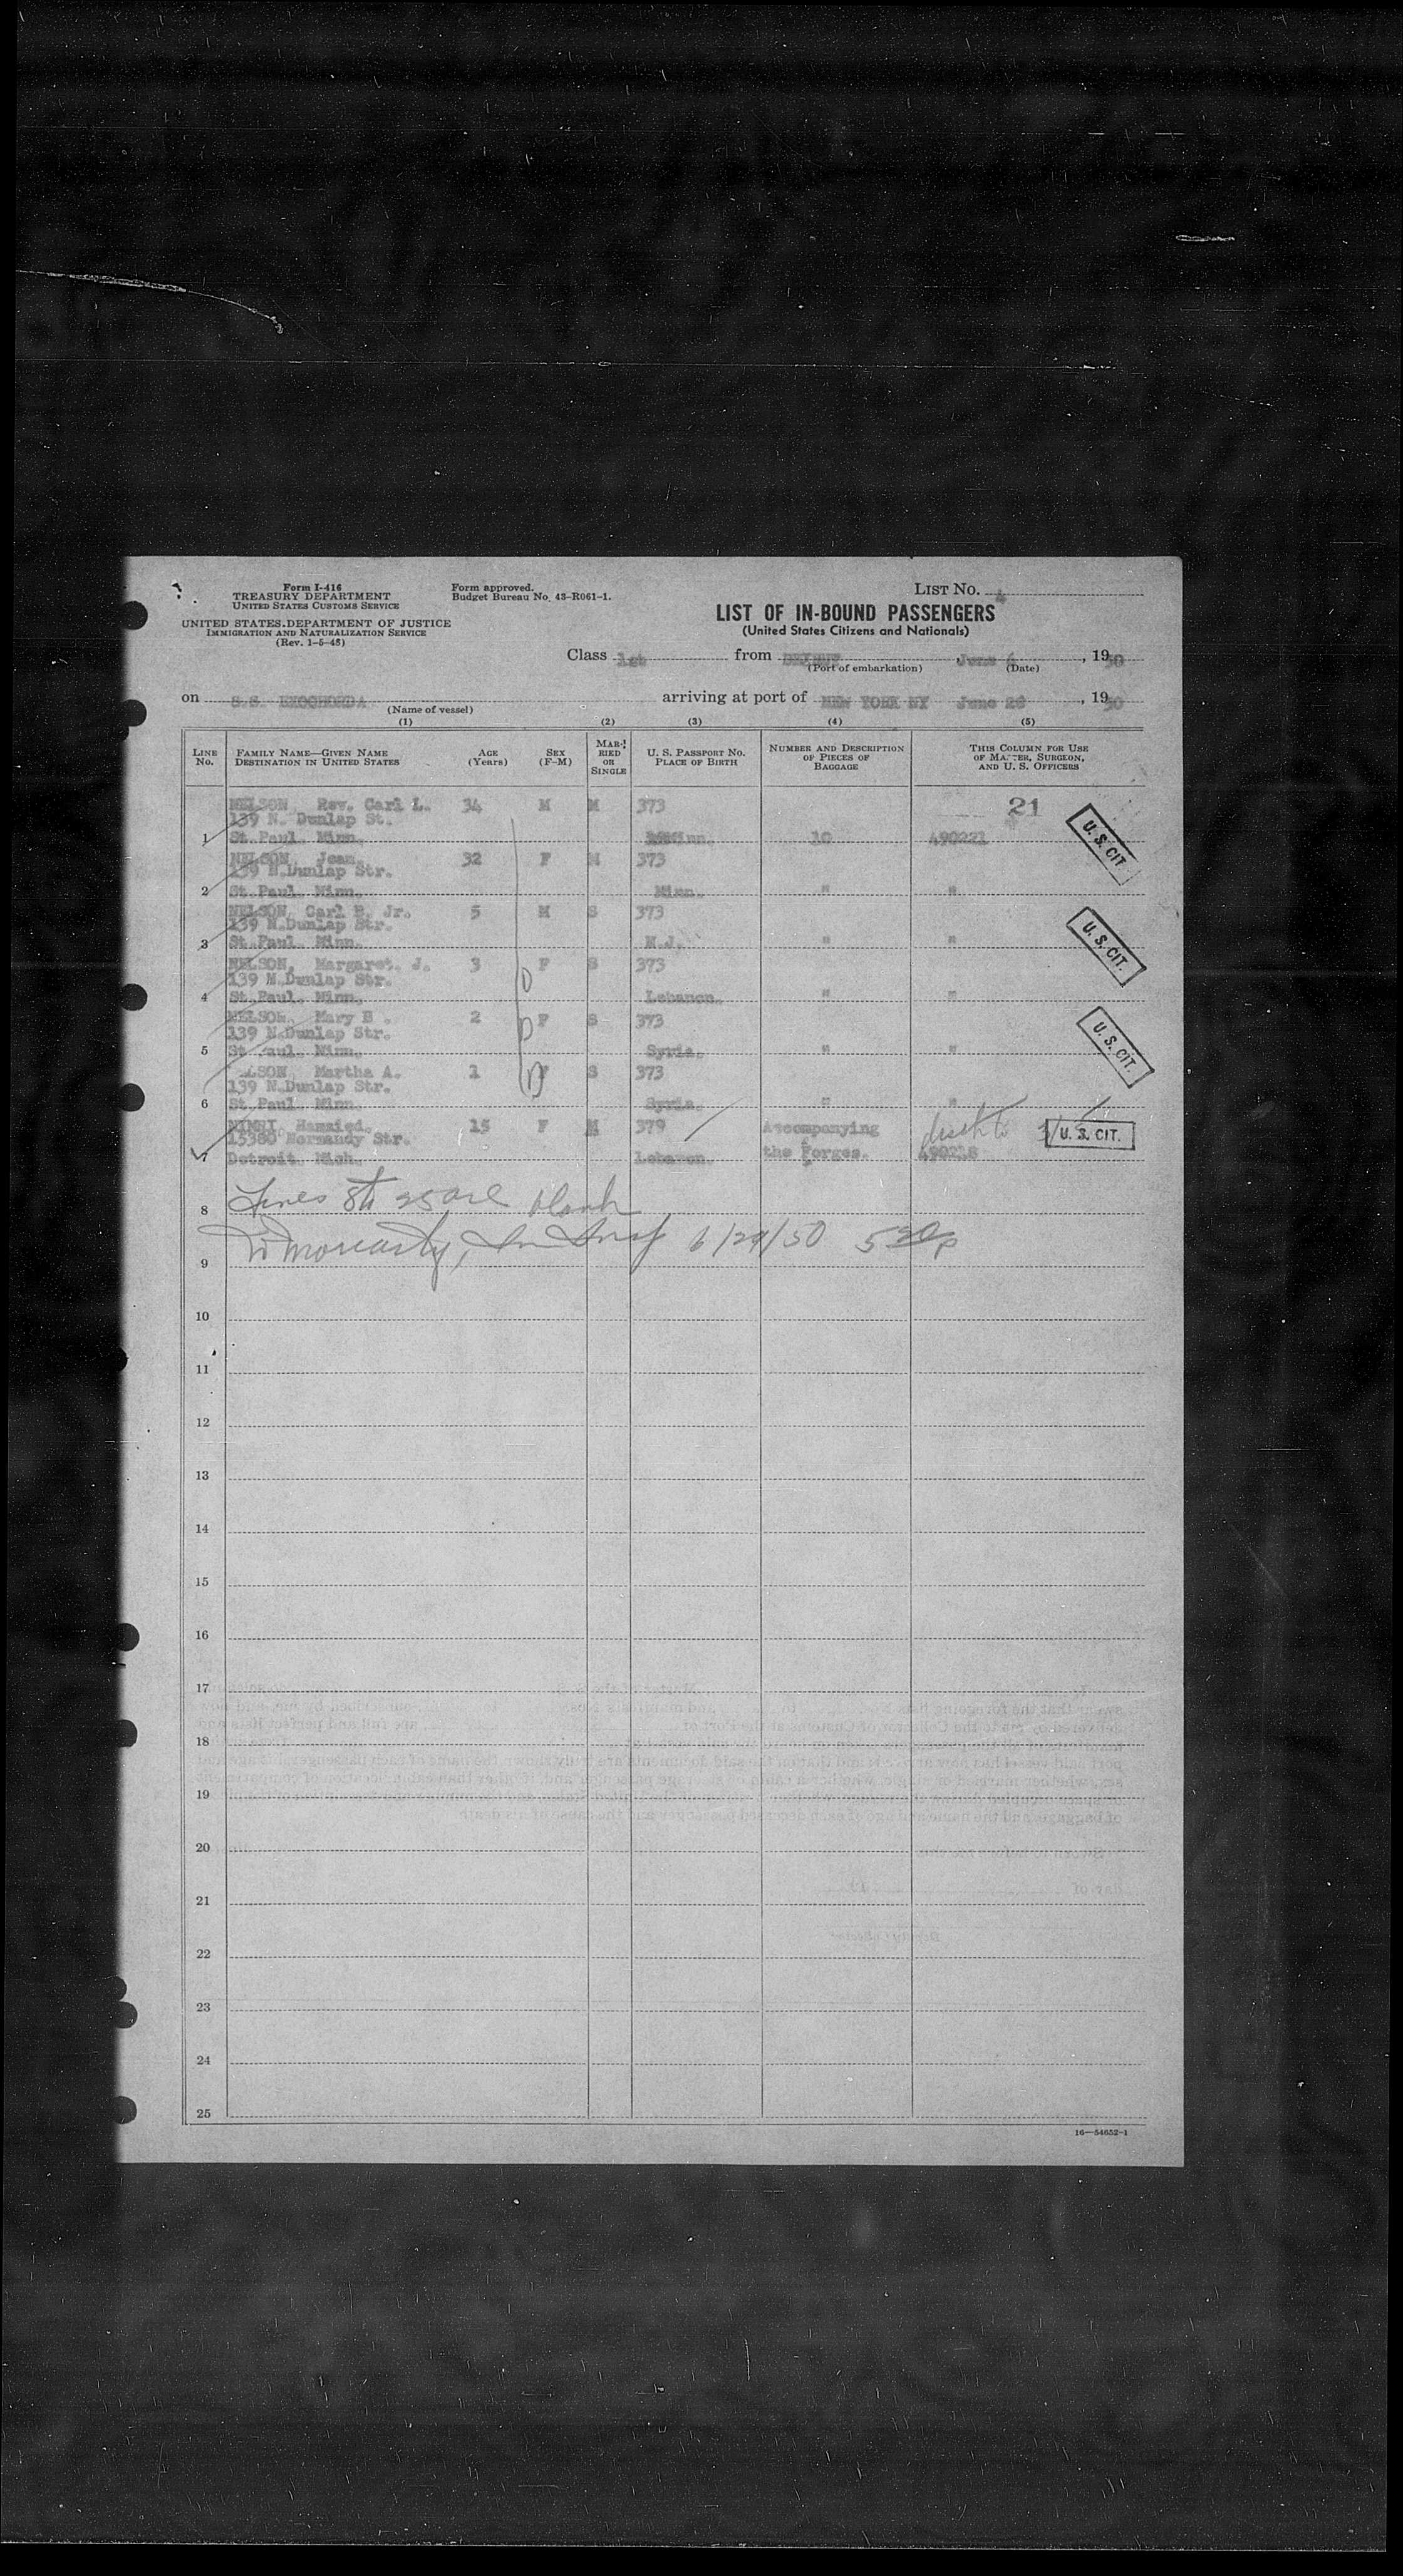 Form I-416
TREASURY DEPARTMENT
UNITED STATES CUSTOMS SERVICE
UNITED STATES DEPARTMENT OF JUSTICE
IMMIGRATION AND NATURALIZATION SERVICE
(Rev. 1-5-48)
Form approved.
Budget Bureau No. 43-R061-1.
LIST No. 4
LIST OF IN-BOUND PASSENGERS
(United States Citizens and Nationals)
Class 1st from BEIRUT, June 6, 1950
(Port of embarkation) (Date)
on S.S EXOCHORDA arriving at port of NEW YORK NY June 28, 1950
(Name of vessel)
(1) (2) (3) (4) (5)
LINE No. FAMILY NAME—GIVEN NAME DESTINATION IN UNITED STATES AGE (Years) SEX (F-M) MARRIED OR SINGLE U. S. PASSPORT No. PLACE OF BIRTH NUMBER AND DESCRIPTION OF PIECES OF BAGGAGE THIS COLUMN FOR USE OF MASTER, SURGEON, AND U. S. OFFICERS
NELSON Rev. Carl L. 34 M M 373 21
139 N. Dunlap St.
1 St.Paul Minn. 10 490221 U. S. CIT.
NELSON, Jean 32 F M 373
139 N.Dunlap Str.
2 St.Paul Minn. Minn. " "
NELSON, Carl B. Jr. 5 M S 373
139 N.Dunlap Str.
3 St.Paul Minn. N.J. " " U. S. CIT.
NELSON, Margaret. J. 3 F S 373
139 N.Dunlap Str.
4 St.Paul Minn. Lebanon. " "
NELSON. Mary B . 2 F S 373
139 N.Dunlap Str.
5 St.Paul Minn. Syria. " " U. S. CIT.
LSON, Martha A. 1 F S 373
139 N.Dunlap Str.
6 St.Paul Minn. Syria. " "
15 F M 379 Accompanying
15380 Normandy Str. U. S. CIT.
7 Detroit Mich. Lebanon. the Forges. 490218
8 Lines 8 to 25 are blank
9 Moriarty, 6/29/50 5 30 p
10
11
12
13
14
15
16
17
18
19
20
21
22
23
24
25
16—54652-1